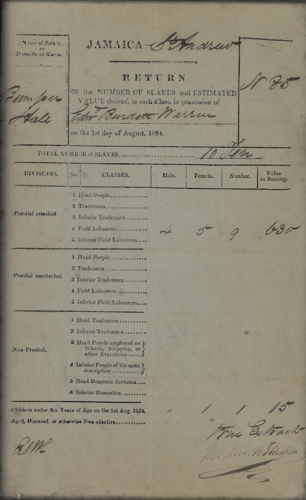 Name of Estate, or Domicile of Slaves. JAMAICA St Andrew
RETURN
Of the NUMBER OF SLAVES and ESTIMATED
VALUE thereof, in each Class, in possession of
Bumper Hall
No 85
Edwd Burdett Warren
on the 1st day of August, 1834.
TOTAL NUMBER OF SLAVES 10 Ten
DIVISIONS. No. CLASSES. Male. Female. Number. Value in Sterling.
Prædial attached
1 Head People
2 Tradesmen
3 Inferior Tradesmen
4 Field Labourers 4 5 9 630
5 Inferior Field Labourers
Prædial unattached
1 Head People
2 Tradesmen
3 Inferior Tradesmen
4 Field Labourers
5 Inferior Field Labourers
Non-Prædial.
1 Head Tradesmen
2 Inferior Tradesmen
3 Head People employed on Wharfs, Shipping, or other Avocations.
4 Inferior People of the same description
5 Head Domestic Servants
6 Inferior Domestics
Children under Six Years of Age on the 1st Aug. 1834. 1 1 15
Aged, Diseased, or otherwise Non-effective.
True Extract